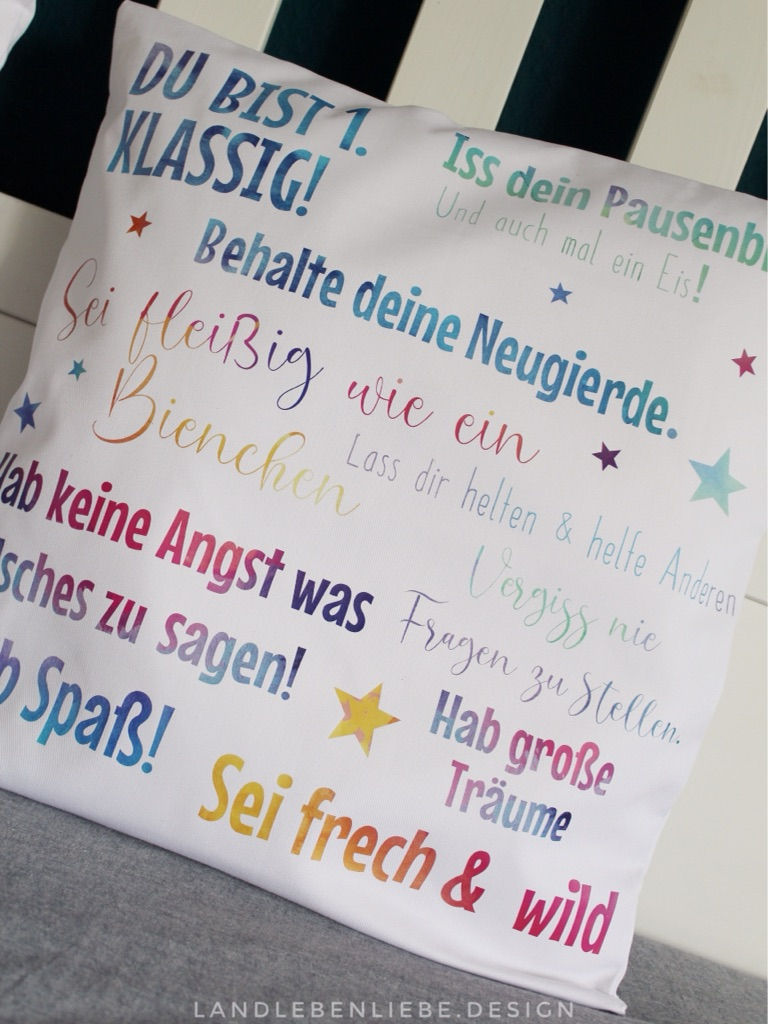 DU BIST 1.
KLASSIG!
Iss dein Pausenb
Und auch mal ein Eis!
Behalte deine Neugierde.
Sei fleißig wie ein
Bienchen
Lass dir helfen & helfe Anderen
Vergiss nie
Fragen zu stellen.
Hab keine Angst was
lsches zu sagen!
b Spaß!
Hab große
Träume
Sei frech & wild
LANDLEBENLIEBE.DESIGN